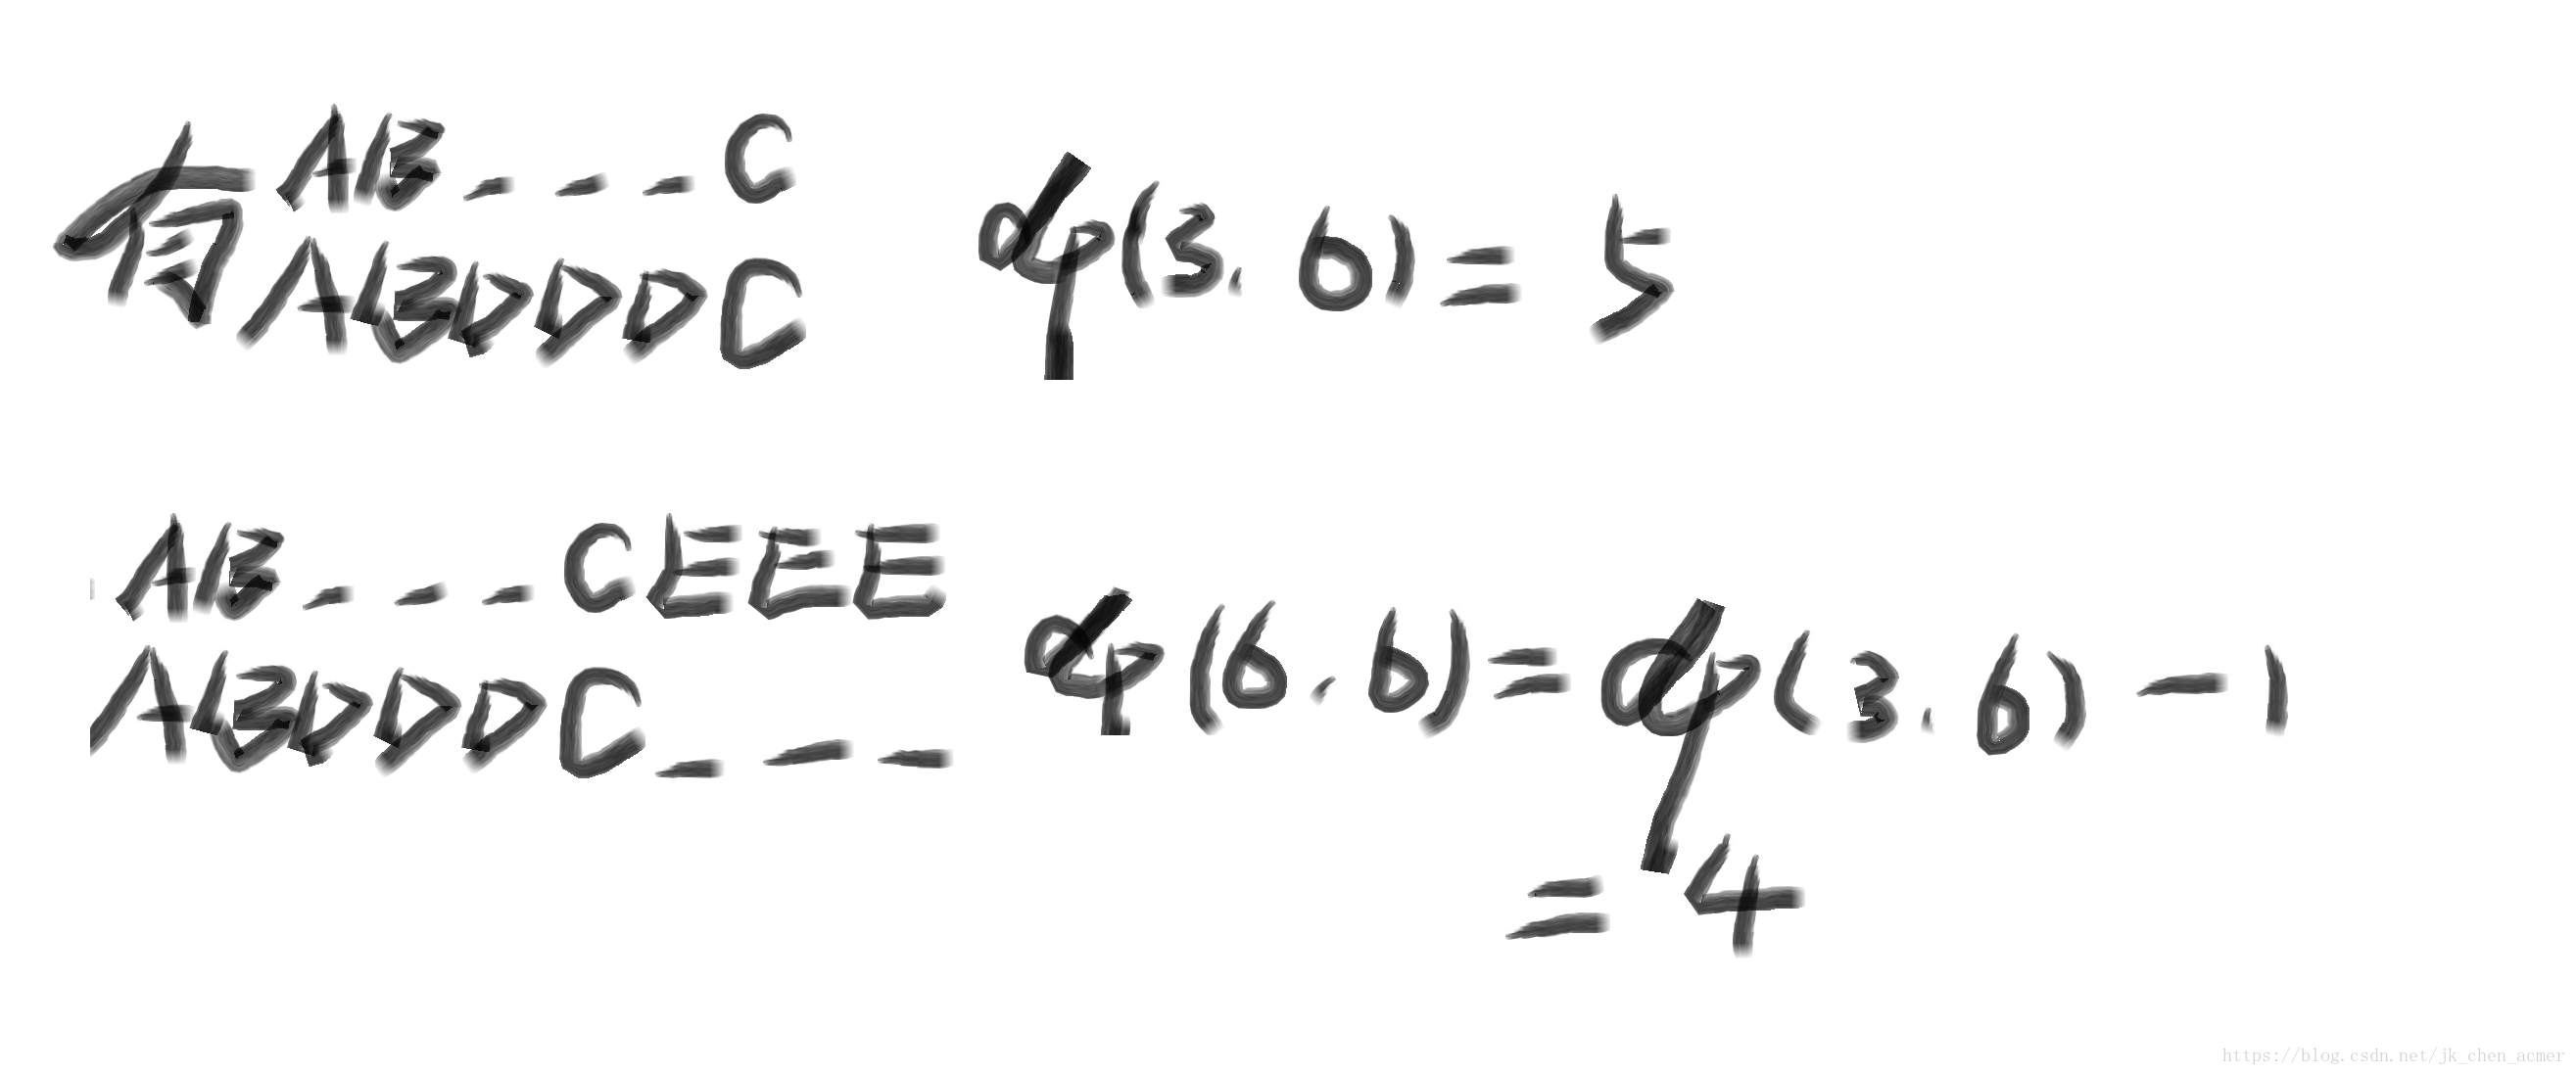 有 AB---C
ABDDDC
dp(3,6)=5
AB---CEEE
ABDDDC---
dp(6,6)=dp(3,6)-1
=4
https://blog.csdn.net/jk_chen_acmer